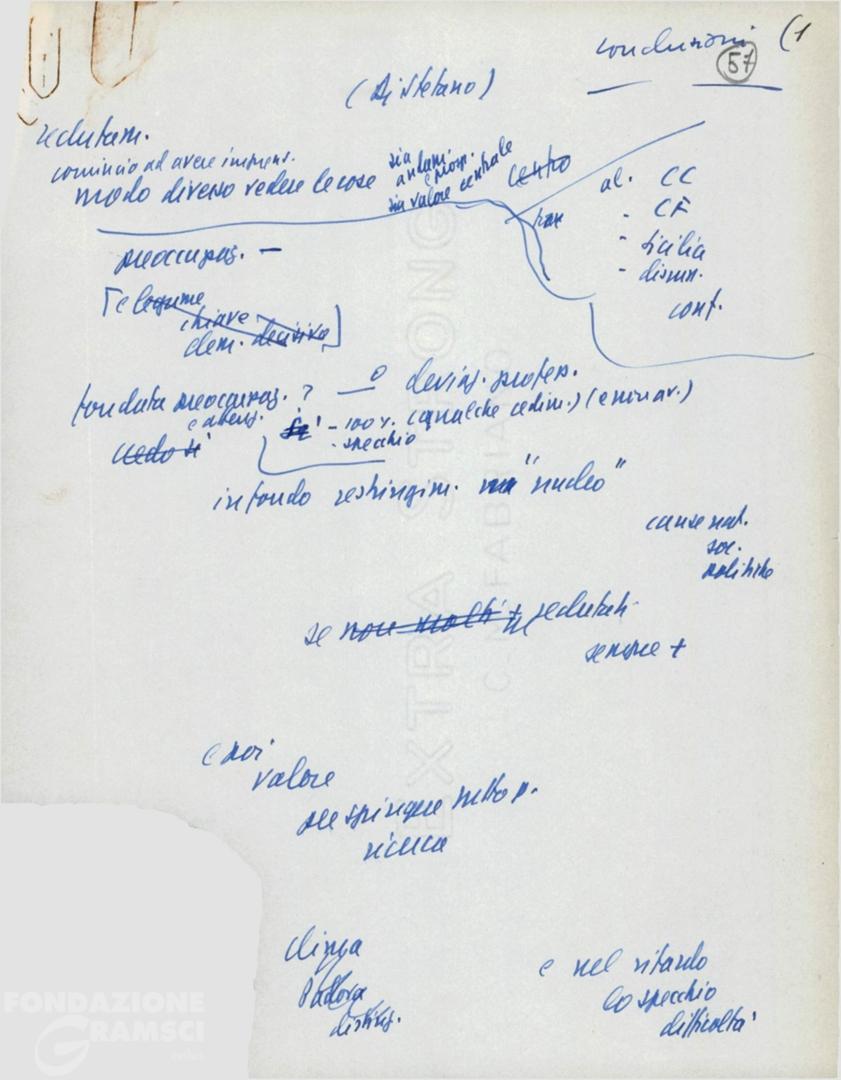 conclusioni (1
57
(Di Stefano)
reclutam.
comincio ad avere impress.
modo diverso vedere le cose
sia andam.
e prosp.
sia valore centrale
centro
al. CC
- CF
- Sicilia
- discuss.
conf.
preoccupaz. -
[e legame
chiave
elem. decisivo]
fondata preoccupaz.? - deviaz. profess.
sì - 100%. (qualche cedim.)
- specchio
credo sì
in fondo restringim. "nucleo"
cause nat.
soc.
politiche
se non molti + reclutati
sempre +
e poi
valore
per spingere tutto p.
ricerca
clima
Padova
e nel ritardo
lo specchio
difficoltà
EXTRA STRONG
FABRIANO
FONDAZIONE
GRAMSCI
onlus